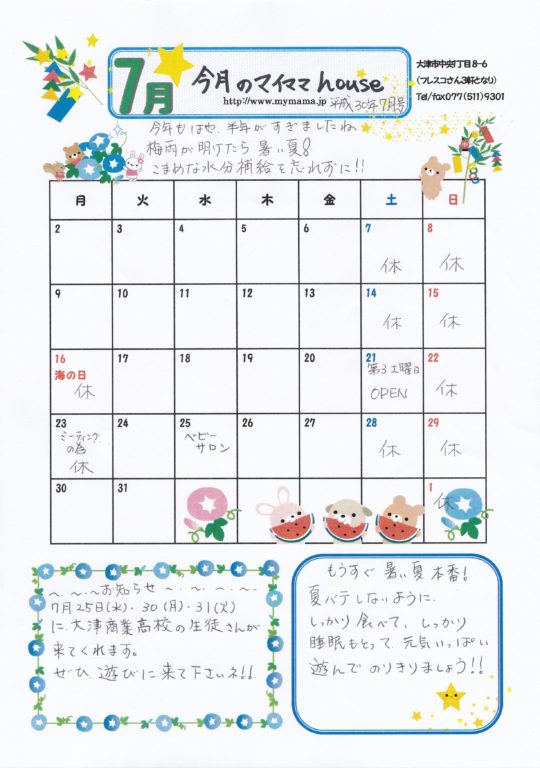 7月
今月のマイママhouse
http://www.mymama.jp
平成30年7月号
大津市中央1丁目8-6
(フレスコさん3軒となり)
Tel/fax077(511)9301
今年もはや、半年がすぎましたね
梅雨が明けたら暑い夏!
こまめな水分補給を忘れずに!!
月 火 水 木 金 土 日
2 3 4 5 6 7 8
休 休
9 10 11 12 13 14 15
休 休
16 17 18 19 20 21 22
海の日 第3土曜日
休 OPEN 休
23 24 25 26 27 28 29
ミーティング ベビー
の為 サロン
休 休 休
30 31 1
休
〜.〜.〜お知らせ〜.〜.〜.〜.
7月25日(水)・30(月)・31(火)
に、大津商業高校の生徒さんが
来てくれます。
ぜひ、遊びに来て下さいネ!!
もうすぐ暑い夏本番!
夏バテしないように、
しっかり食べて、しっかり
睡眠もとって、元気いっぱい
遊んでのりきりましょう!!